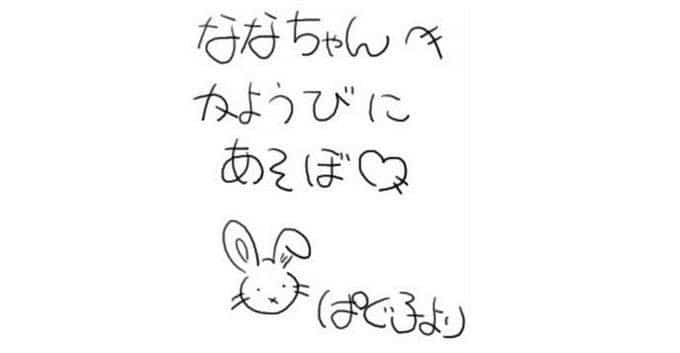 ななちゃんへ
かようびに
あそぼ♡
(ぱど子より)